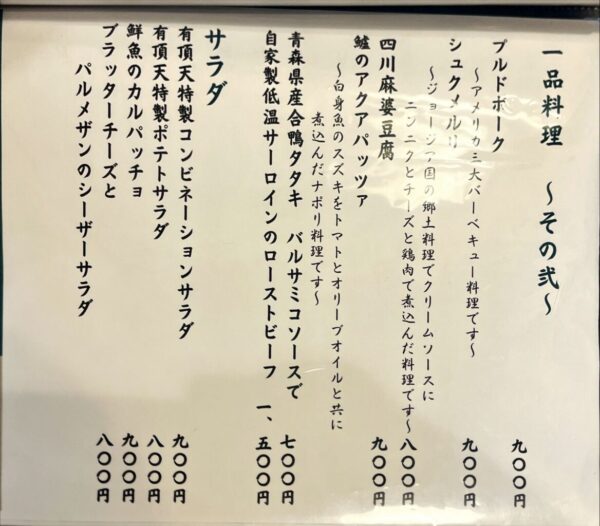 一品料理 ～その弐～
プルドポーク 九〇〇円
～アメリカ三大バーベキュー料理です～
シュクメルリ 九〇〇円
～ジョージア国の郷土料理でクリームソースに
ニンニクとチーズと鶏肉で煮込んだ料理です～
四川麻婆豆腐 八〇〇円
鱸のアクアパッツァ 九〇〇円
～白身魚のスズキをトマトとオリーブオイルと共に
煮込んだナポリ料理です～
青森県産合鴨タタキ バルサミコソースで 七〇〇円
自家製低温サーロインのローストビーフ 一、五〇〇円
サラダ
有頂天特製コンビネーションサラダ 九〇〇円
有頂天特製ポテトサラダ 八〇〇円
鮮魚のカルパッチョ 九〇〇円
ブラッターチーズと
パルメザンのシーザーサラダ 八〇〇円